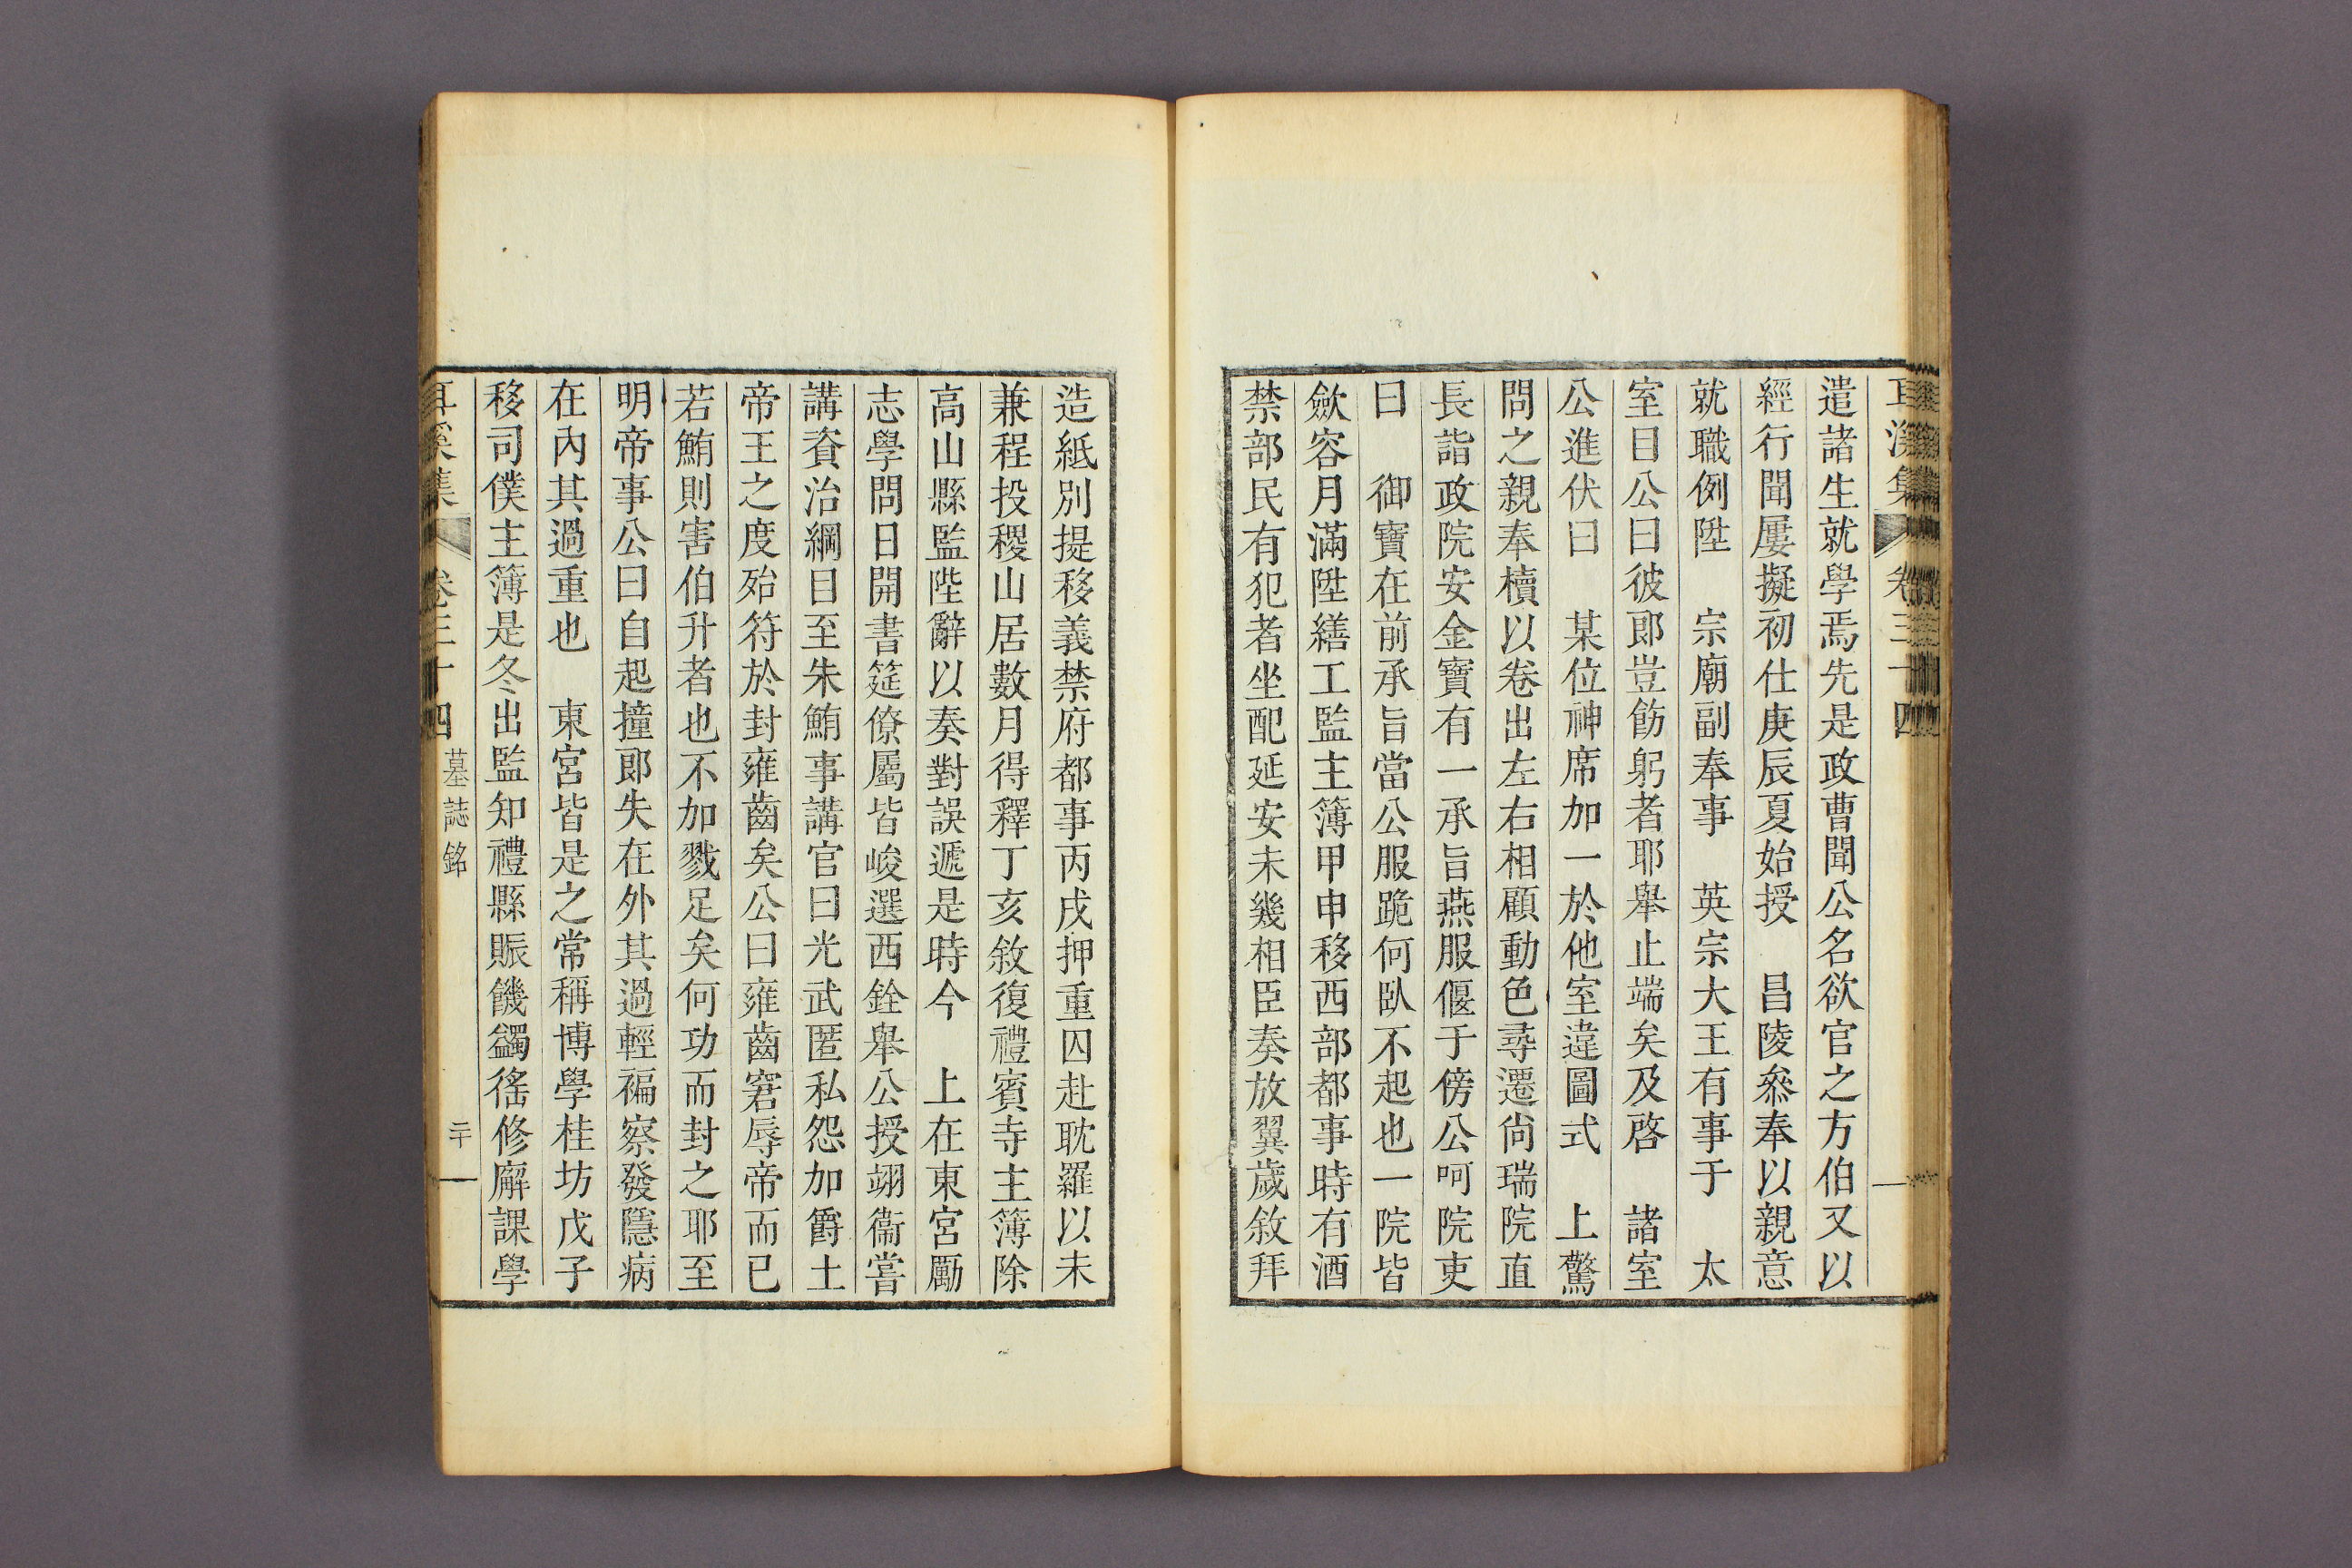 遣諸生就學焉先是政曹聞公名欲官之方伯又以
經行聞屢擬初仕庚辰夏始授　昌陵叅奉以親意
就職例陞　宗廟副奉事　英宗大王有事于　太
室目公曰彼郞豈飭躬者耶舉止端矣及啓　諸室
公進伏曰　某位神席加一於他室違圖式　上驚
問之親奉櫝以卷出左右相顧動色尋遷尙瑞院直
長詣政院安金寶有一承旨燕服偃于傍公呵院吏
曰　御寶在前承旨當公服跪何臥不起也一院皆
歛容月滿陞繕工監主簿甲申移西部都事時有酒
禁部民有犯者坐配延安未幾相臣奏放翼歲敘拜
造紙別提移義禁府都事丙戌押重囚赴耽羅以未
兼程投稷山居數月得釋丁亥敘復禮賓寺主簿除
高山縣監陛辭以奏對誤遞是時今　上在東宮勵
志學問日開書筵僚屬皆峻選西銓舉公授翊衞嘗
講資治綱目至朱鮪事講官曰光武匿私怨加爵土
帝王之度殆符於封雍齒矣公曰雍齒窘辱帝而已
若鮪則害伯升者也不加戮足矣何功而封之耶至
明帝事公曰自起撞郞失在外其過輕褊察發隱病
在內其過重也　東宮皆是之常稱博學桂坊戊子
移司僕主簿是冬出監知禮縣賑饑蠲徭修廨課學
耳溪集　卷三十四　墓誌銘　二十